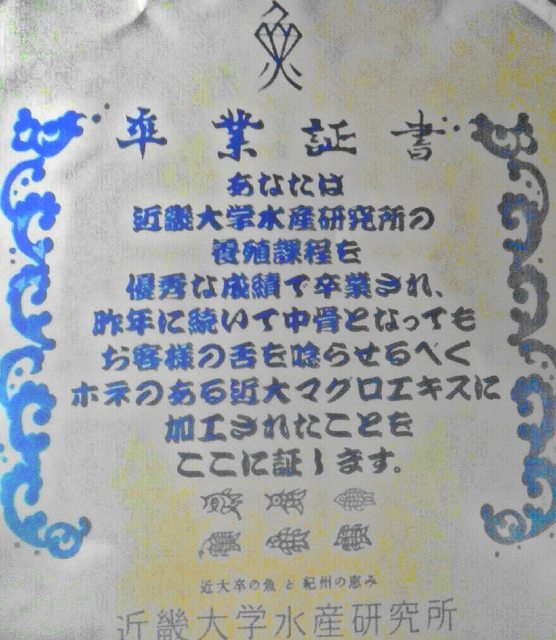 卒業証書
あなたは
近畿大学水産研究所の
養殖課程を
優秀な成績で卒業され、
昨年に続いて中骨となっても
お客様の舌を唸らせるべく
ホネのある近大マグロエキスに
加工されたことを
ここに証します。
近大卒の魚と紀州の恵み
近畿大学水産研究所